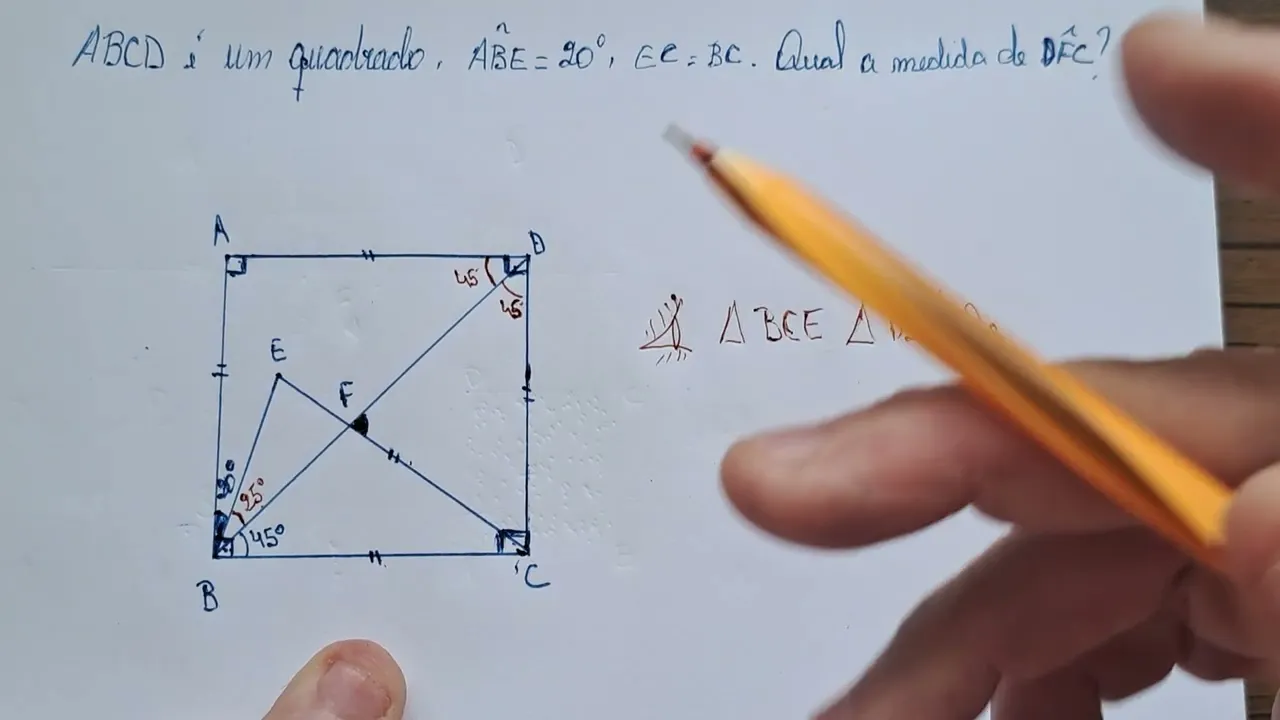 ABCD é um quadrado, AB̂E = 20°, EC = BC. Qual a medida de DF̂C?
A
D
45
45
E
F
20°
25°
45°
B
C
Δ BCE Δ